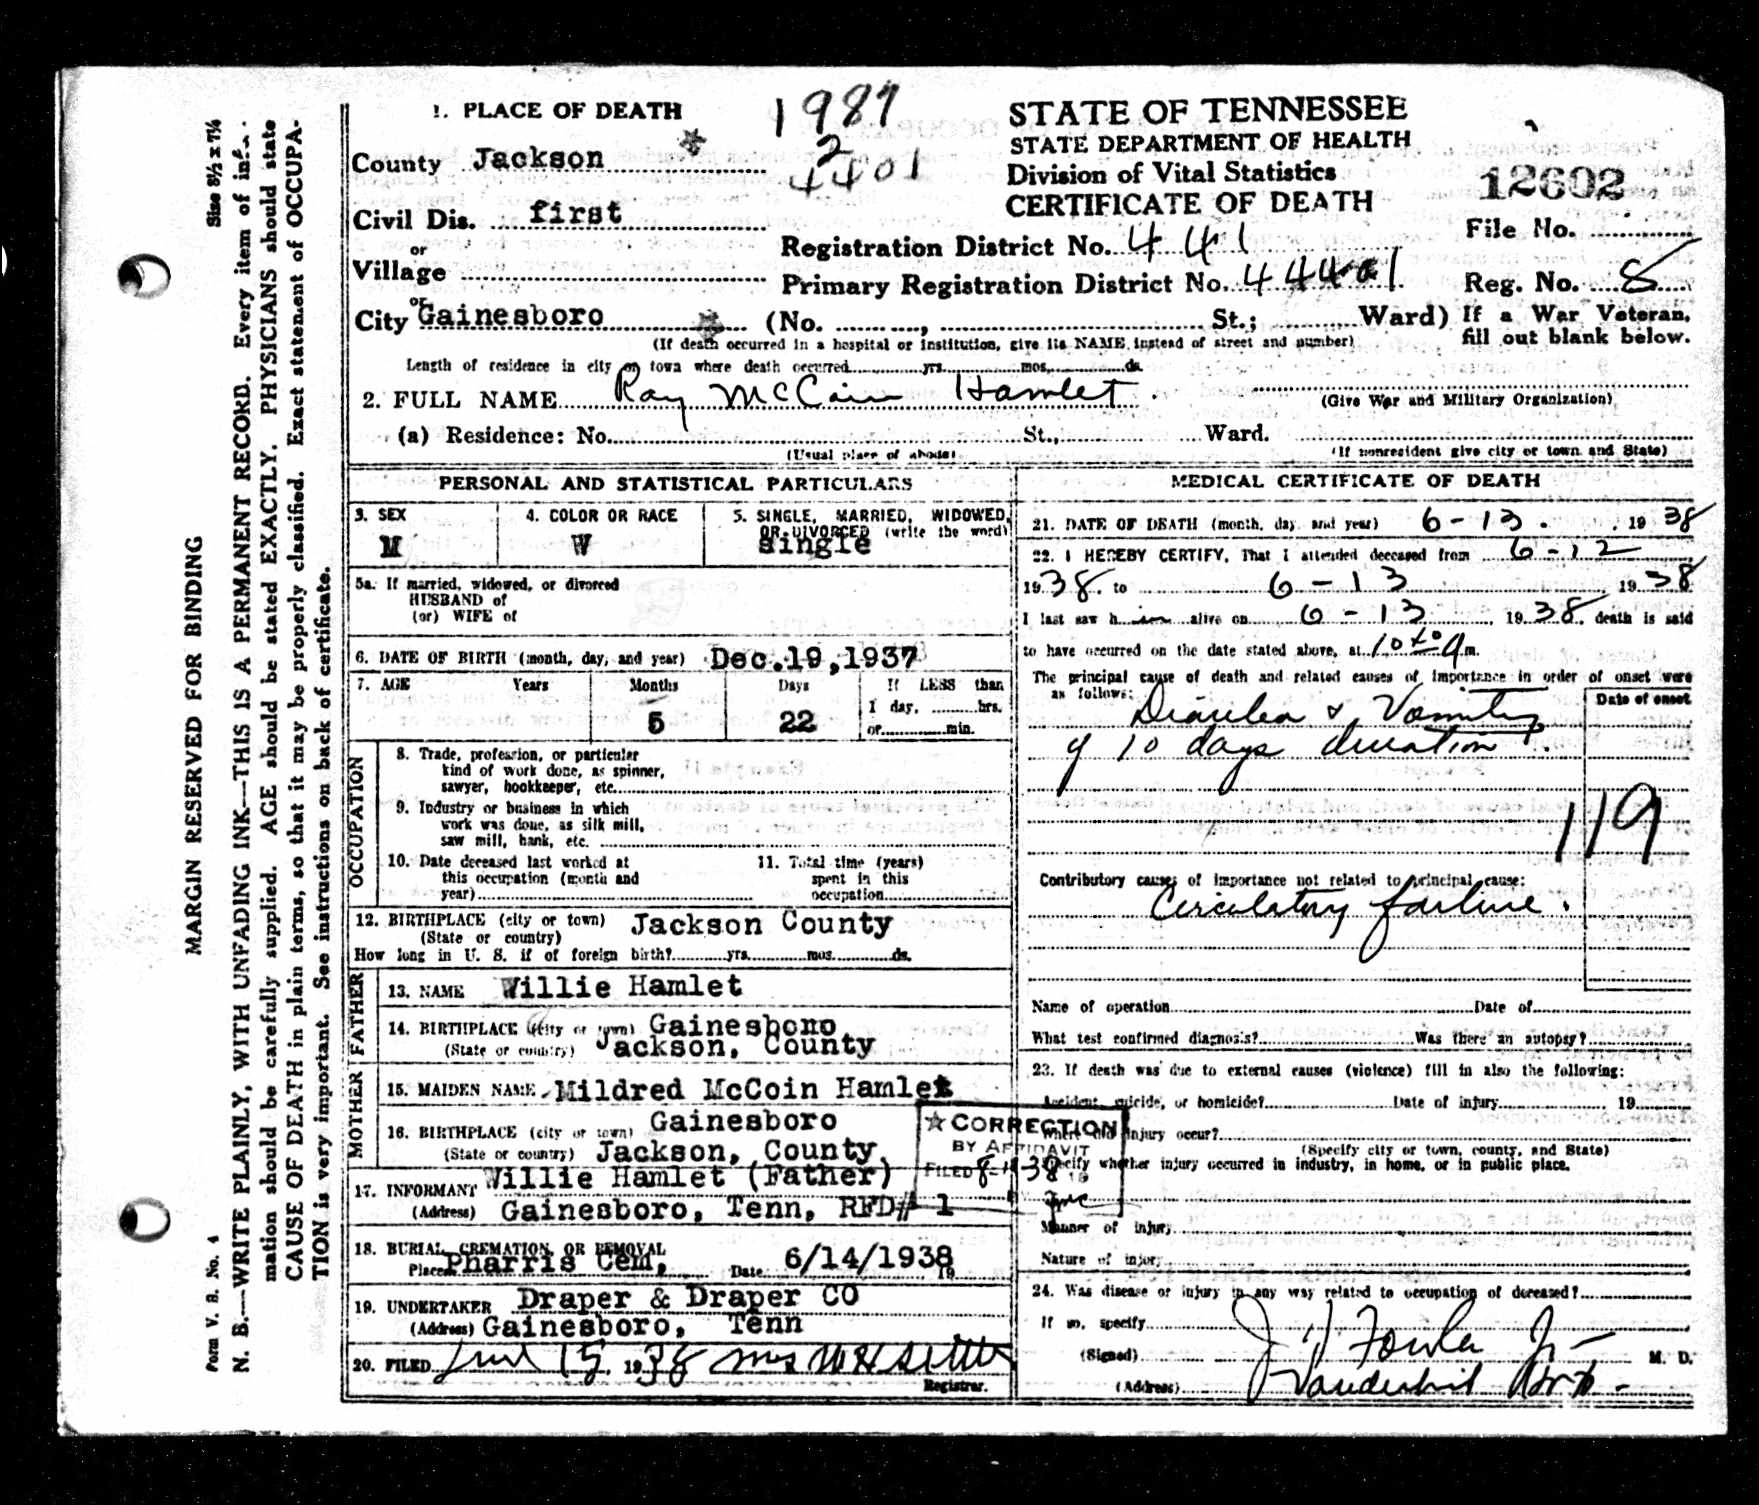 Size 8½ x 7¼
MARGIN RESERVED FOR BINDING
Form V. S. No. 4
N. B.—WRITE PLAINLY, WITH UNFADING INK—THIS IS A PERMANENT RECORD. Every item of infor-
mation should be carefully supplied. AGE should be stated EXACTLY. PHYSICIANS should state
CAUSE OF DEATH in plain terms, so that it may be properly classified. Exact statement of OCCUPA-
TION is very important. See instructions on back of certificate.
1. PLACE OF DEATH
County Jackson
Civil Dis. first
or
Village
or
City Gainesboro
1987
2
4401
STATE OF TENNESSEE
STATE DEPARTMENT OF HEALTH
Division of Vital Statistics
CERTIFICATE OF DEATH
12602
File No.
Registration District No. 441
Primary Registration District No. 44401
Reg. No. 8
(No. , St.; Ward)
If a War Veteran,
fill out blank below.
(If death occurred in a hospital or institution, give its NAME instead of street and number)
Length of residence in city or town where death occurred yrs. mos. ds.
2. FULL NAME Ray McCain Hamlet
(Give War and Military Organization)
(a) Residence: No. St., Ward.
(Usual place of abode)
(If nonresident give city or town and State)
PERSONAL AND STATISTICAL PARTICULARS
3. SEX
M
4. COLOR OR RACE
W
5. SINGLE, MARRIED, WIDOWED,
OR DIVORCED (write the word)
single
5a. If married, widowed, or divorced
HUSBAND of
(or) WIFE of
6. DATE OF BIRTH (month, day, and year) Dec.19,1937
7. AGE Years Months Days
5 22
If LESS than
1 day, hrs.
or min.
OCCUPATION
8. Trade, profession, or particular
kind of work done, as spinner,
sawyer, bookkeeper, etc.
9. Industry or business in which
work was done, as silk mill,
saw mill, bank, etc.
10. Date deceased last worked at
this occupation (month and
year)
11. Total time (years)
spent in this
occupation
12. BIRTHPLACE (city or town) Jackson County
(State or country)
How long in U. S. if of foreign birth? yrs. mos. ds.
FATHER
13. NAME Willie Hamlet
14. BIRTHPLACE (city or town) Gainesboro
(State or country) Jackson, County
MOTHER
15. MAIDEN NAME Mildred McCoin Hamlet
16. BIRTHPLACE (city or town) Gainesboro
(State or country) Jackson, County,
17. INFORMANT Willie Hamlet (Father)
(Address) Gainesboro, Tenn, RFD# 1
18. BURIAL, CREMATION, OR REMOVAL
Place Pharris Cem, Date 6/14/1938
19
19. UNDERTAKER Draper & Draper CO
(Address) Gainesboro, Tenn
20. FILED Jun 15 1938 Mrs
Registrar.
MEDICAL CERTIFICATE OF DEATH
21. DATE OF DEATH (month, day, and year) 6-13. 1938
22. I HEREBY CERTIFY, That I attended deceased from 6-12
1938. to 6-13 1938
I last saw him alive on 6-13 1938. death is said
to have occurred on the date stated above, at m.
The principal cause of death and related causes of importance in order of onset were
as follows:
Date of onset
Diarrhea & Vomiting
of 10 days duration.
119
Contributory causes of importance not related to principal cause:
Circulatory failure.
Name of operation Date of
What test confirmed diagnosis? Was there an autopsy?
23. If death was due to external causes (violence) fill in also the following:
Accident, suicide, or homicide? Date of injury 19
Where did injury occur?
(Specify city or town, county, and State)
Specify whether injury occurred in industry, in home, or in public place.
Manner of injury
Nature of injury
☆ CORRECTION
BY AFFIDAVIT
FILED 8-1-38 19
24. Was disease or injury in any way related to occupation of deceased?
If so, specify
(Signed) J. H. Fowler Jr. M. D.
(Address) Vanderbilt